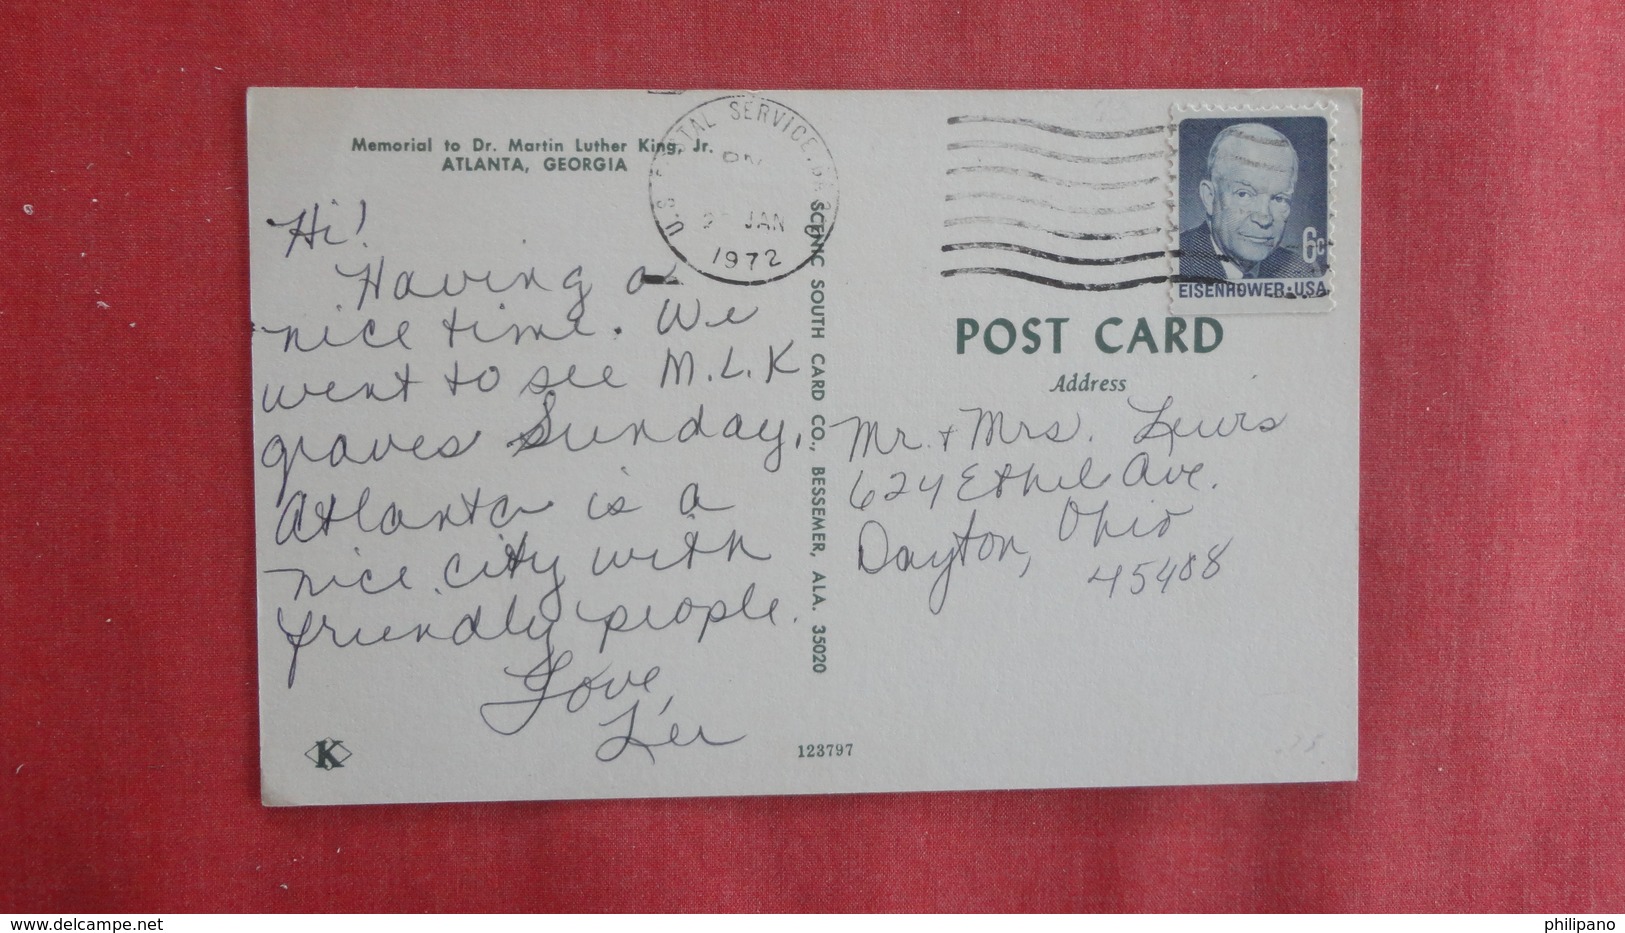 Memorial to Dr. Martin Luther King, Jr.
ATLANTA, GEORGIA
Hi!
Having a
nice time. We
went to see M.L.K
graves Sunday.
Atlanta is a
nice city with
friendly people.
Love,
K
123797
SCENIC SOUTH CARD CO., BESSEMER, ALA. 35020
U.S. POSTAL SERVICE, GA
PM
JAN
1972
6c
EISENHOWER·USA
POST CARD
Address
Mr. + Mrs. Lewis
624 Ethel Ave.
Dayton, Ohio
45408
philipano